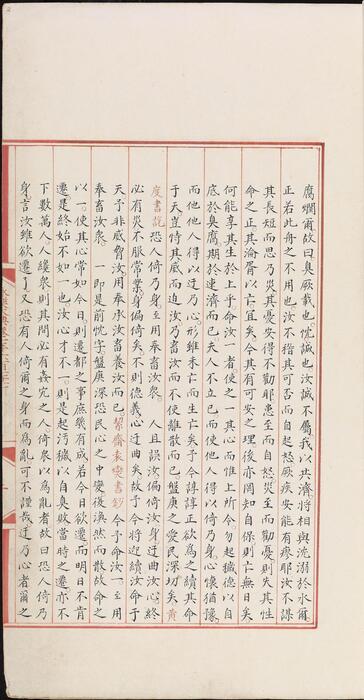 腐爛爾故曰臭厥載也忱誠也汝誠不屬我以共濟將相與沈溺於水爾
正若此舟之不用也汝不稽其可否而自起怒厥疾安能有瘳耶汝不謀
其長短而思乃災其憂安得不勸耶患至而自怒災至而勸憂則失其性
命之正其淪胥以亡宜矣今其有可安之理後亦罔知自保則亡無日矣
何能享其生於上乎命汝一者使之一其心而惟上所令勿起穢德以自
底於臭腐期於速濟而已夫人不立已而使他人得以倚乃身心懷猶豫
而他他人得以迂乃心形雖未亡而生亡矣予今諄諄正欲為之續其命
于天豈恃其威而迫汝乃畜汝而不使離散而已盤庚之愛民深切矣黄
度書說恐人倚乃身至用奉汝衆 人且誤汝偏倚汝身迂曲汝心終
必有災不服常業身偏倚矣不則德義心迂曲矣故予今將迓續汝命于
天予非威脅汝用奉承汝畜養汝而已絜齋袁燮書鈔今予命汝一至用
奉畜汝衆 一即是前忱字盤庚深恐民心之中變後渙然而散故命之
以一使其心常如今日則遷都之事庶幾有成若今日欲遷而明日不肯
遷是終始不如一也汝心才不一則是起污穢以自臭敗當時之遷亦不
下數萬人人纔衆則其間必有姦宄之人倚衆以為亂者故曰恐人倚乃
身言汝雖欲遷了又恐有人倚爾之身而為亂可不謹哉迂乃心者爾之